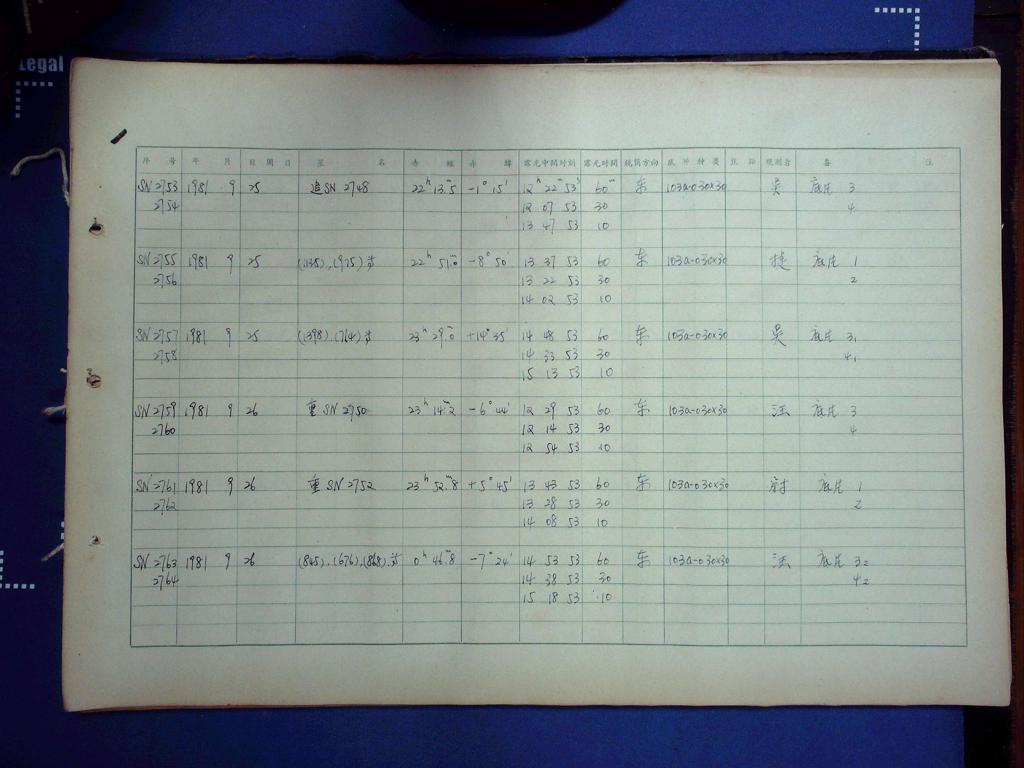 Legal
序 号 年 月 日 周 日 星 名 赤 经 赤 纬 露光中间时刻 露光时间 镜筒方向 底片种类 观测者 备 注
SN 2753 1981 9 25 追SN 2748 22ʰ 13ᵐ.5 -1° 15′ 12ʰ 22ᵐ 53ˢ 60ᵐ 东 103a-O 30×30 吴 底片 3
2754 12 07 53 30 4
13 47 53 10
SN 2755 1981 9 25 (1135).(975)等 22ʰ 51ᵐ.0 -8° 50′ 13 37 53 60 东 103a-O 30×30 底片 1
2756 13 22 53 30 2
14 02 53 10
SN 2757 1981 9 25 (1398).(764)等 23ʰ 29ᵐ.0 +14° 35′ 14 48 53 60 东 103a-O 30×30 吴 底片 3₁
2758 14 33 53 30 4₁
15 13 53 10
SN 2759 1981 9 26 重 SN 2750 23ʰ 14ᵐ.2 -6° 44′ 12 29 53 60 东 103a-O 30×30 汪 底片 3
2760 12 14 53 30 4
12 54 53 10
SN 2761 1981 9 26 重 SN 2752 23ʰ 52ᵐ.8 +5° 45′ 13 43 53 60 东 103a-O 30×30 底片 1
2762 13 28 53 30 2
14 08 53 10
SN 2763 1981 9 26 (845).(676).(868).等 0ʰ 46ᵐ.8 -7° 24′ 14 53 53 60 东 103a-O 30×30 汪 底片 3₂
2764 14 38 53 30 4₂
15 18 53 10